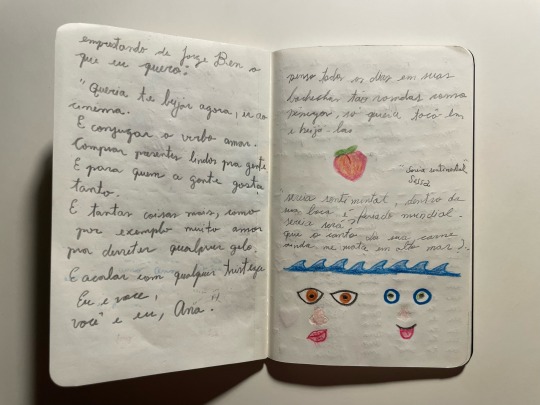 emprestando de Jorge Ben o
que eu quero:
"Queria te beijar agora, ir ao
cinema.
E conjugar o verbo amar.
Comprar presentes lindos pra gente
E para quem a gente gosta
tanto.
E tantas coisas mais, como
por exemplo muito amor
pra derreter qualquer gelo,
E acabar com qualquer tristeza
Eu e você,
você e eu, Ana."
penso todos os dias em suas
bochechas tão rosadas como
pêssegos, só queria tocá-las
e beijá-las
"Seria sentimental"
Sessa
seria sentimental, dentro da
sua boca é feriado mundial.
seria será
que o canto da sua carne
ainda me mata em alto mar?